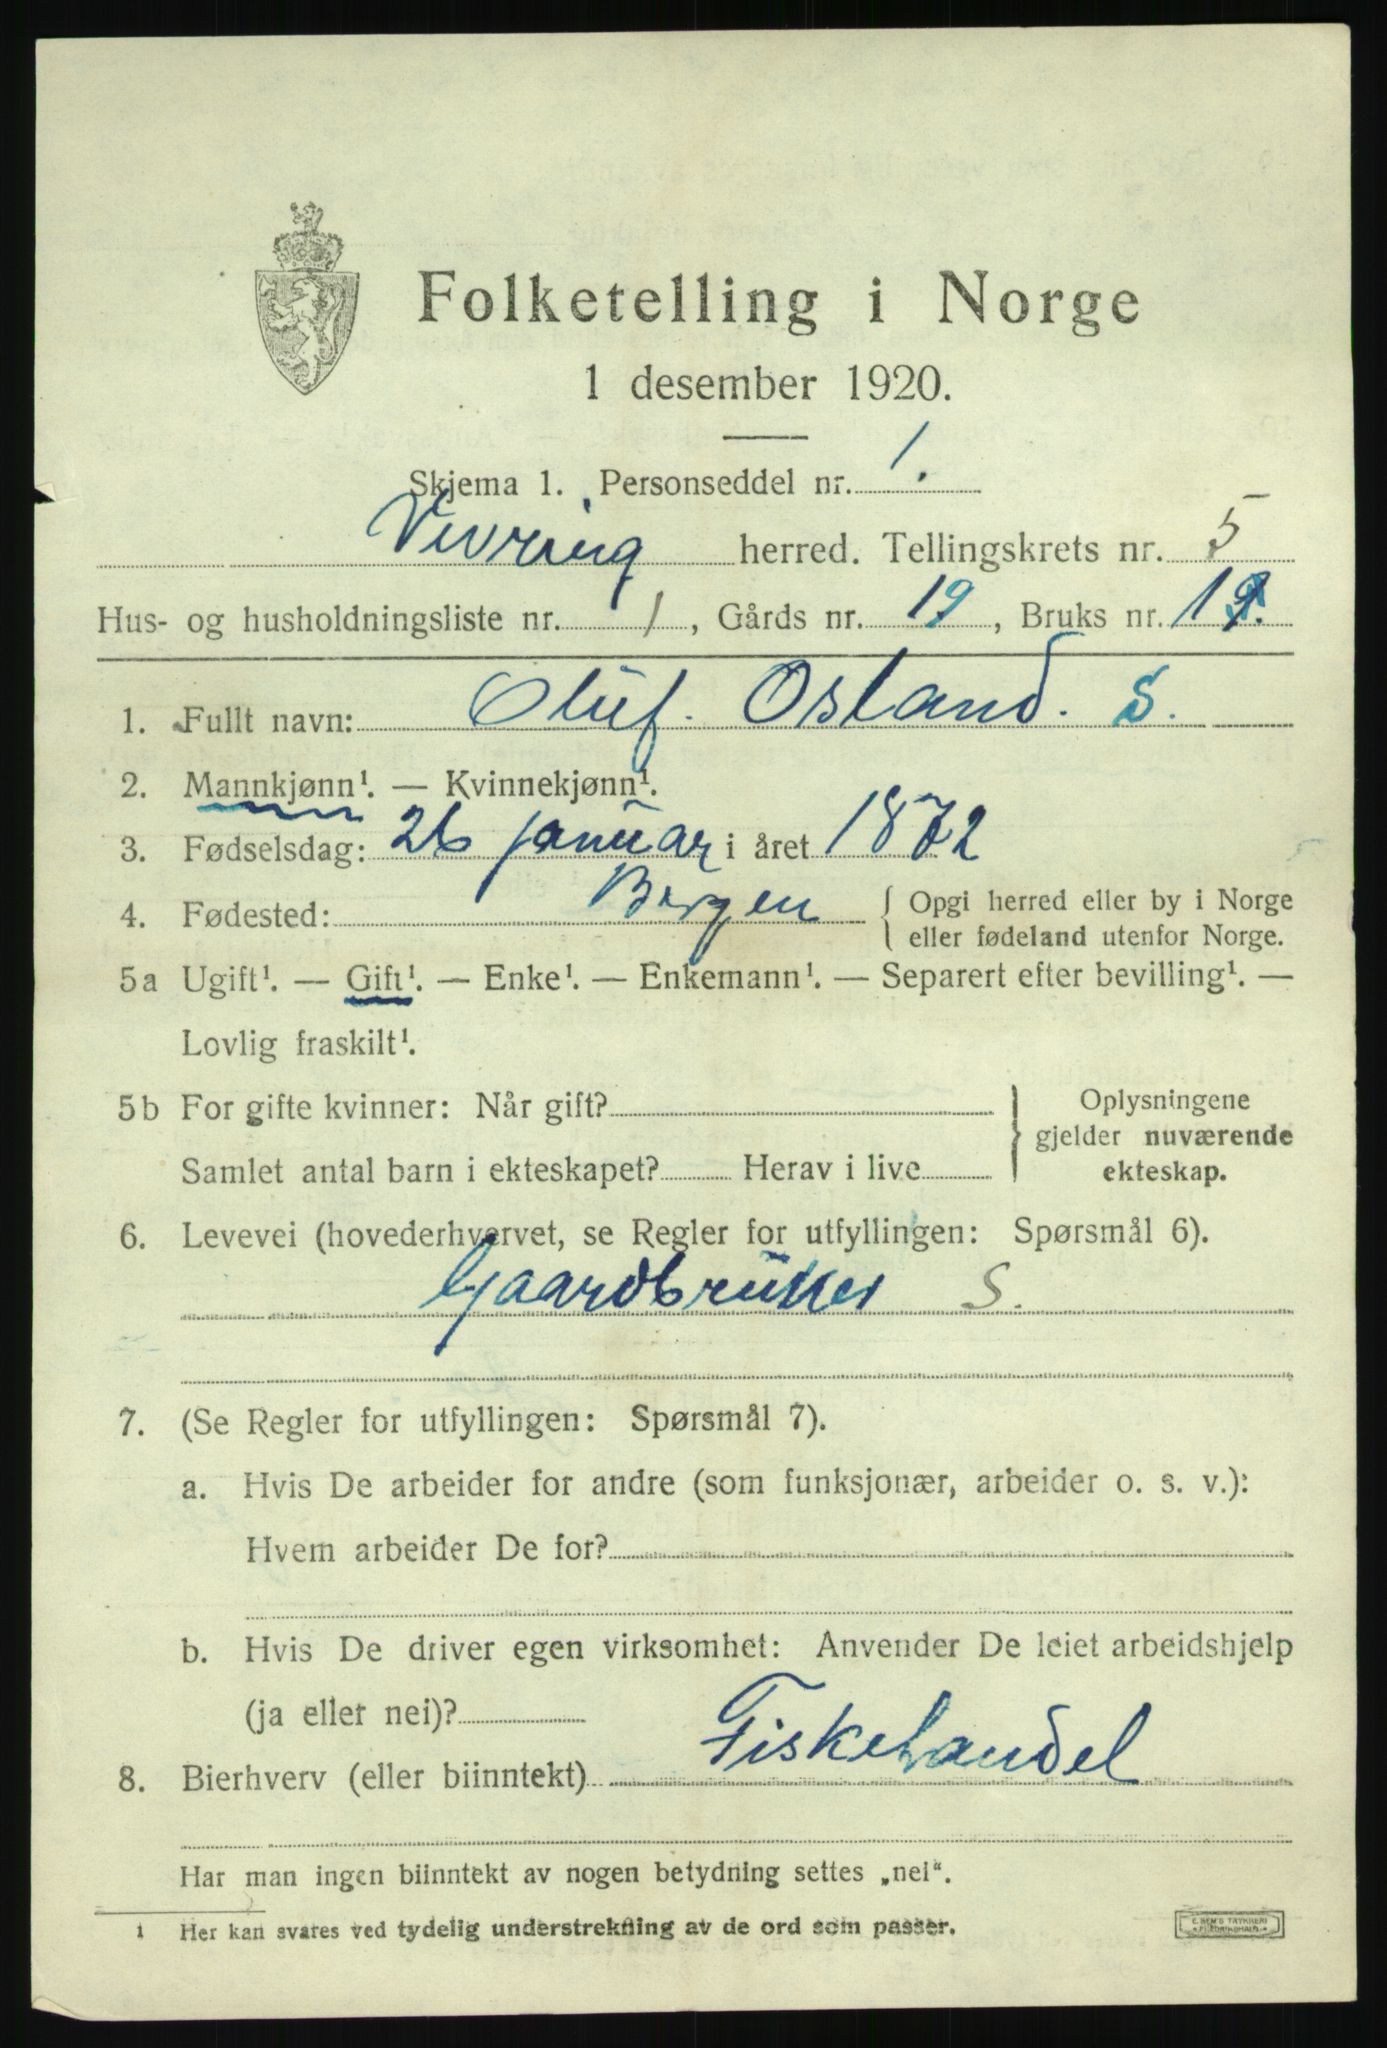 Folketelling i Norge
1 desember 1920.
Skjema 1. Personseddel nr. 1.
Vevring herred. Tellingskrets nr. 5
Hus- og husholdningsliste nr. 1, Gårds nr. 19, Bruks nr.
1. Fullt navn: Oluf. Osland. S.
2. Mannkjønn¹. — Kvinnekjønn¹.
3. Fødselsdag: 26 januar i året 1872
4. Fødested: Bergen { Opgi herred eller by i Norge
eller fødeland utenfor Norge.
5a Ugift¹. — Gift¹. — Enke¹. — Enkemann¹. — Separert efter bevilling¹. —
Lovlig fraskilt¹.
5b For gifte kvinner: Når gift?
Samlet antal barn i ekteskapet? Herav i live
} Oplysningene
gjelder nuværende
ekteskap.
6. Levevei (hovederhvervet, se Regler for utfyllingen: Spørsmål 6).
Gaardbruker S.
7. (Se Regler for utfyllingen: Spørsmål 7).
a. Hvis De arbeider for andre (som funksjonær, arbeider o. s. v.):
Hvem arbeider De for?
b. Hvis De driver egen virksomhet: Anvender De leiet arbeidshjelp
(ja eller nei)?
8. Bierhverv (eller biinntekt) Fiskehandel
Har man ingen biinntekt av nogen betydning settes „nei“.
1 Her kan svares ved tydelig understrekning av de ord som passer.